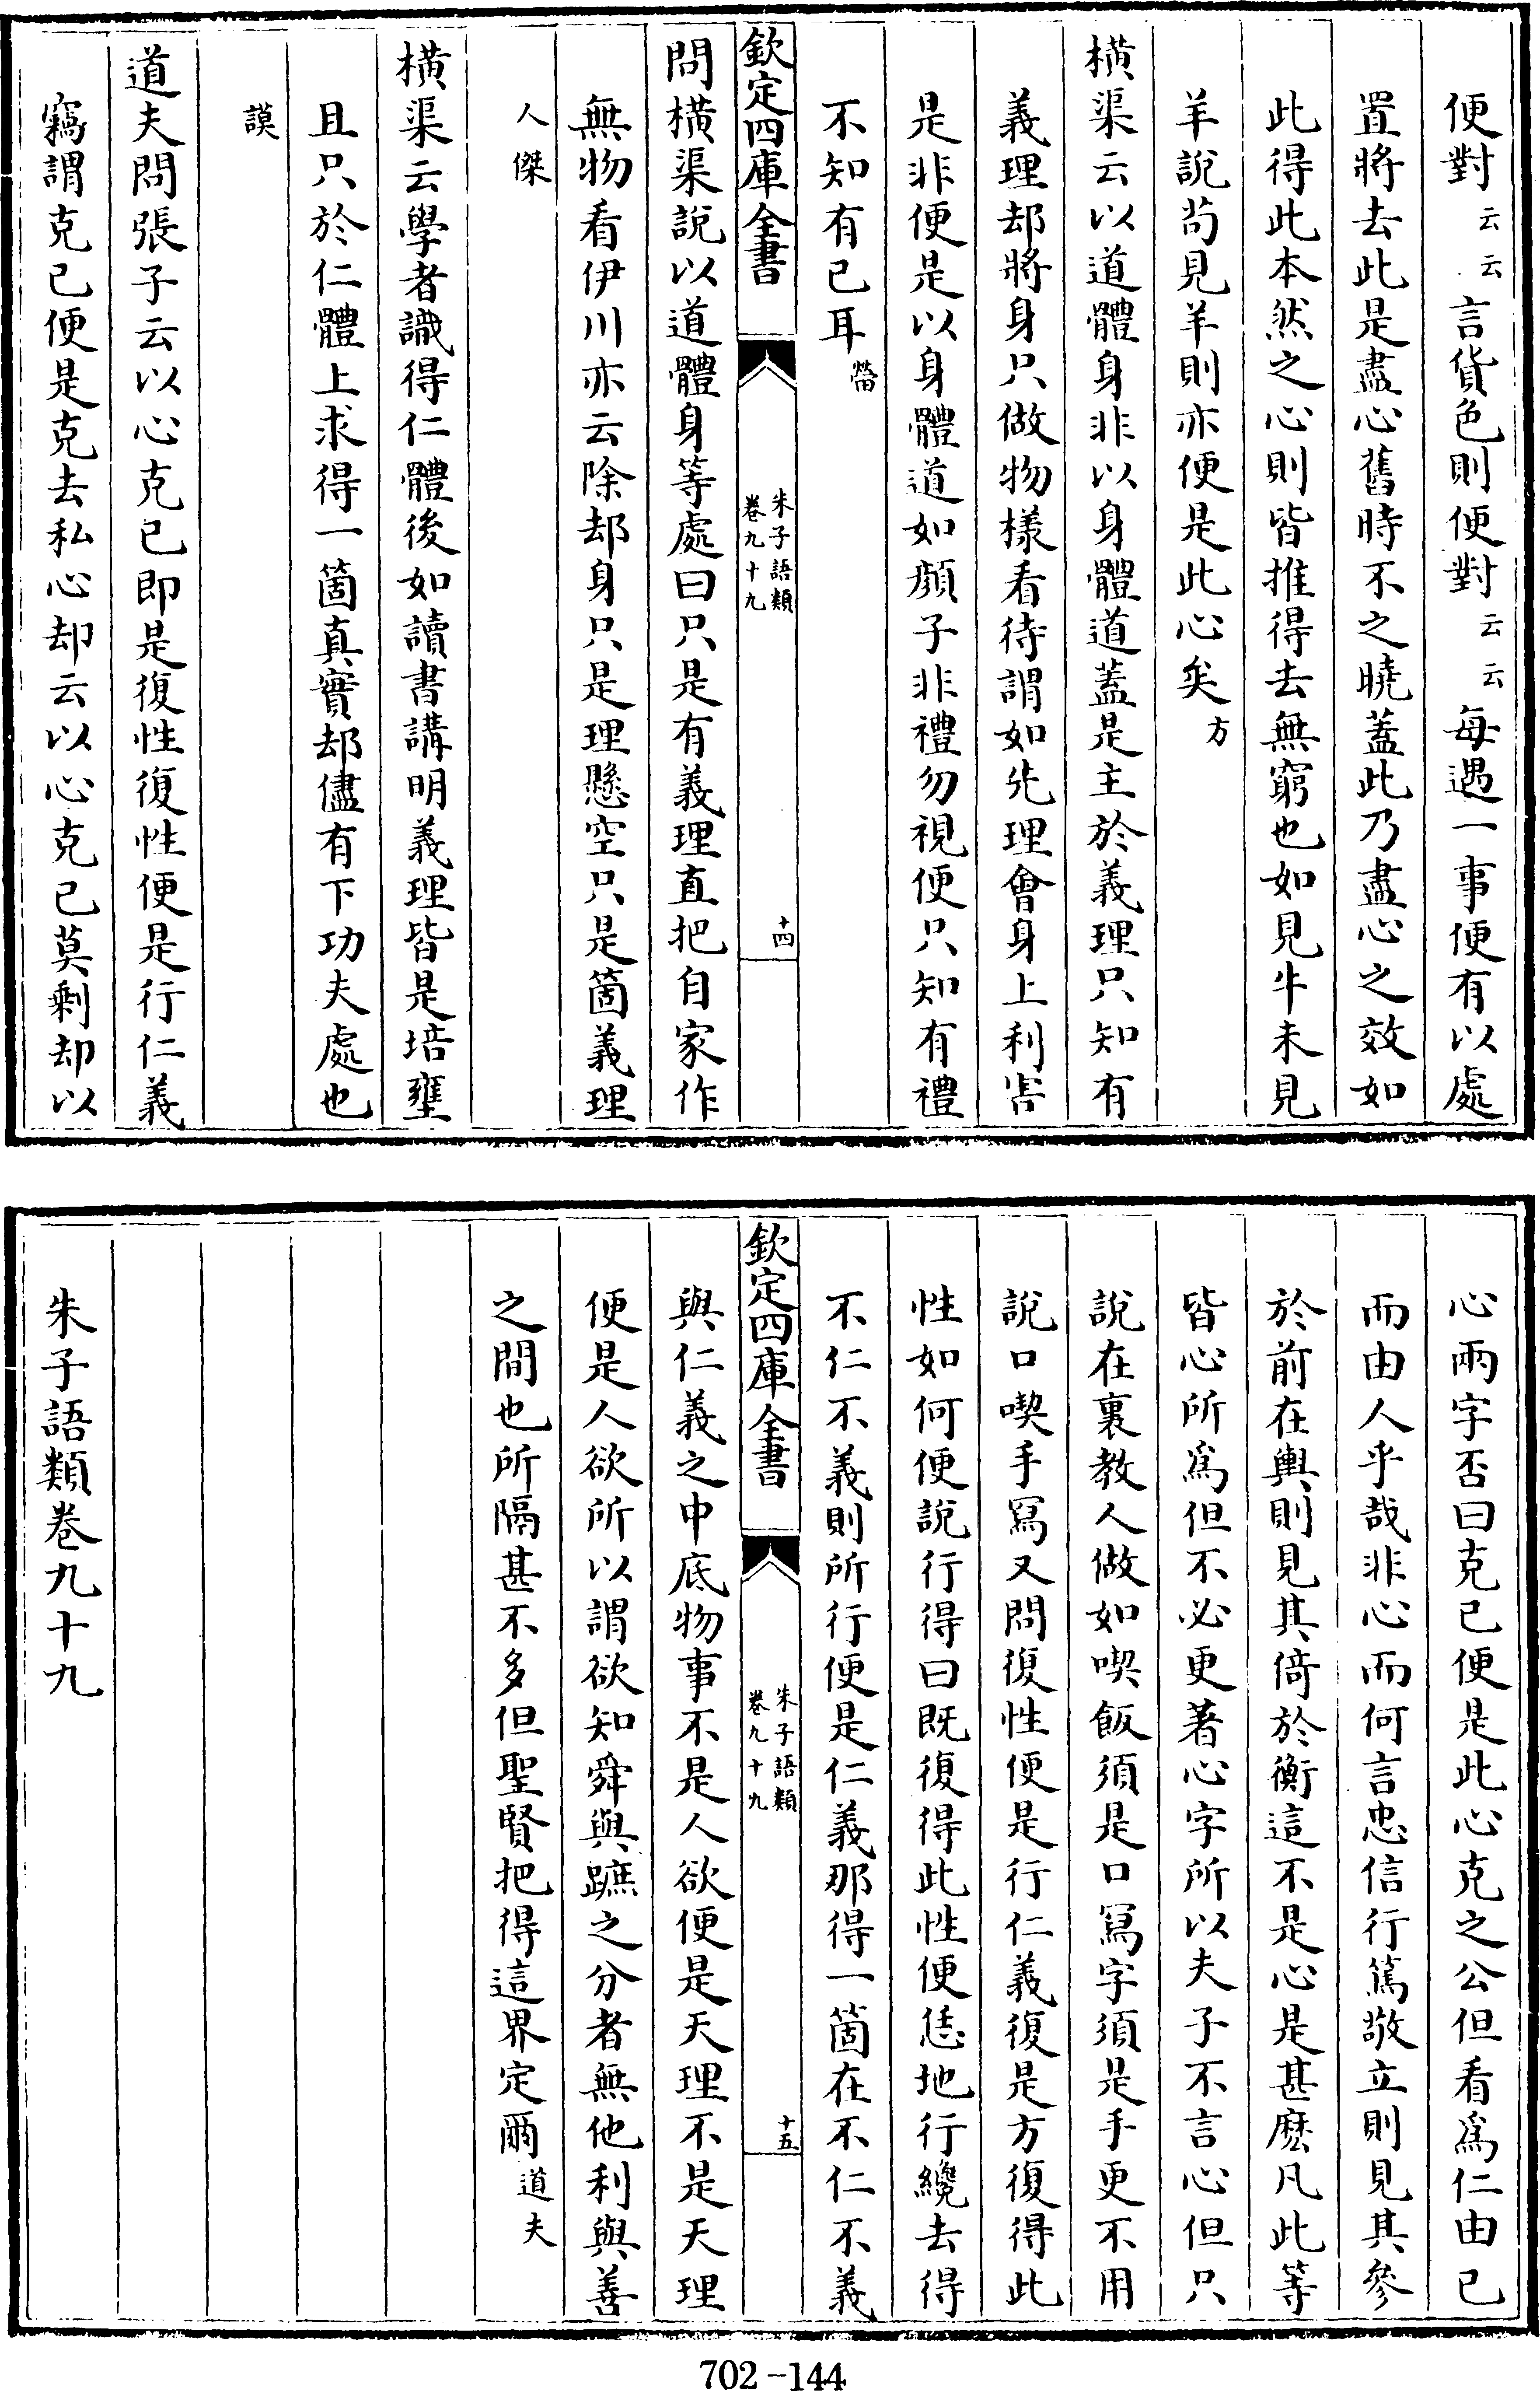 便對云云言貨色則便對云云每遇一事便有以處
置將去此是盡心舊時不之曉蓋此乃盡心之效如
此得此本然之心則皆推得去無窮也如見牛未見
羊說茍見羊則亦便是此心矣方
橫渠云以道體身非以身體道蓋是主於義理只知有
義理却將身只做物樣看待謂如先理會身上利害
是非便是以身體道如顏子非禮勿視便只知有禮
不知有已耳㽦
欽定四庫全書
朱子語類
卷九十九
十四
問橫渠說以道體身等處曰只是有義理直把自家作
無物看伊川亦云除却身只是理懸空只是箇義理
人傑
橫渠云學者識得仁體後如讀書講明義理皆是培壅
且只於仁體上求得一箇真實却儘有下功夫處也
謨
道夫問張子云以心克已即是復性復性便是行仁義
竊謂克已便是克去私心却云以心克已莫剩却以
心兩字否曰克已便是此心克之公但看爲仁由已
而由人乎哉非心而何言忠信行篤敬立則見其參
於前在輿則見其倚於衡這不是心是甚麽凡此等
皆心所爲但不必更著心字所以夫子不言心但只
說在裏教人做如喫飯須是口寫字須是手更不用
說口喫手寫又問復性便是行仁義復是方復得此
性如何便說行得曰既復得此性便恁地行纔去得
不仁不義則所行便是仁義那得一箇在不仁不義
欽定四庫全書
朱子語類
卷九十九
十五
與仁義之中底物事不是人欲便是天理不是天理
便是人欲所以謂欲知舜與蹠之分者無他利與善
之間也所隔甚不多但聖賢把得這界定爾道夫
朱子語類卷九十九
702-144